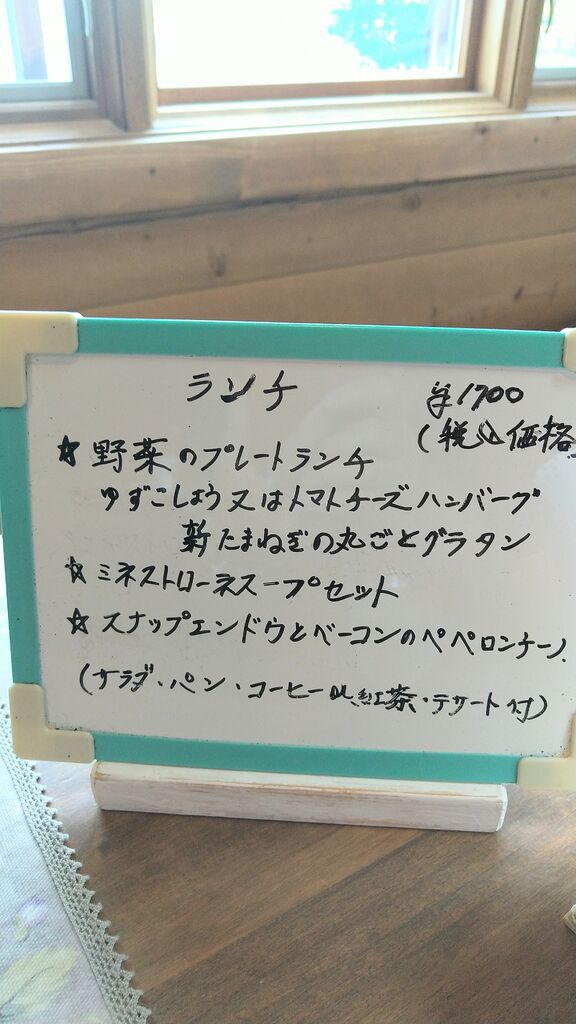 ランチ
¥1700
(税込価格
☆野菜のプレートランチ
ゆずこしょう又はトマトチーズハンバーグ
新たまねぎの丸ごとグラタン
☆ミネストローネスープセット
☆スナップエンドウとベーコンのペペロンチーノ
(サラダ・パン・コーヒーor紅茶・デザート付)